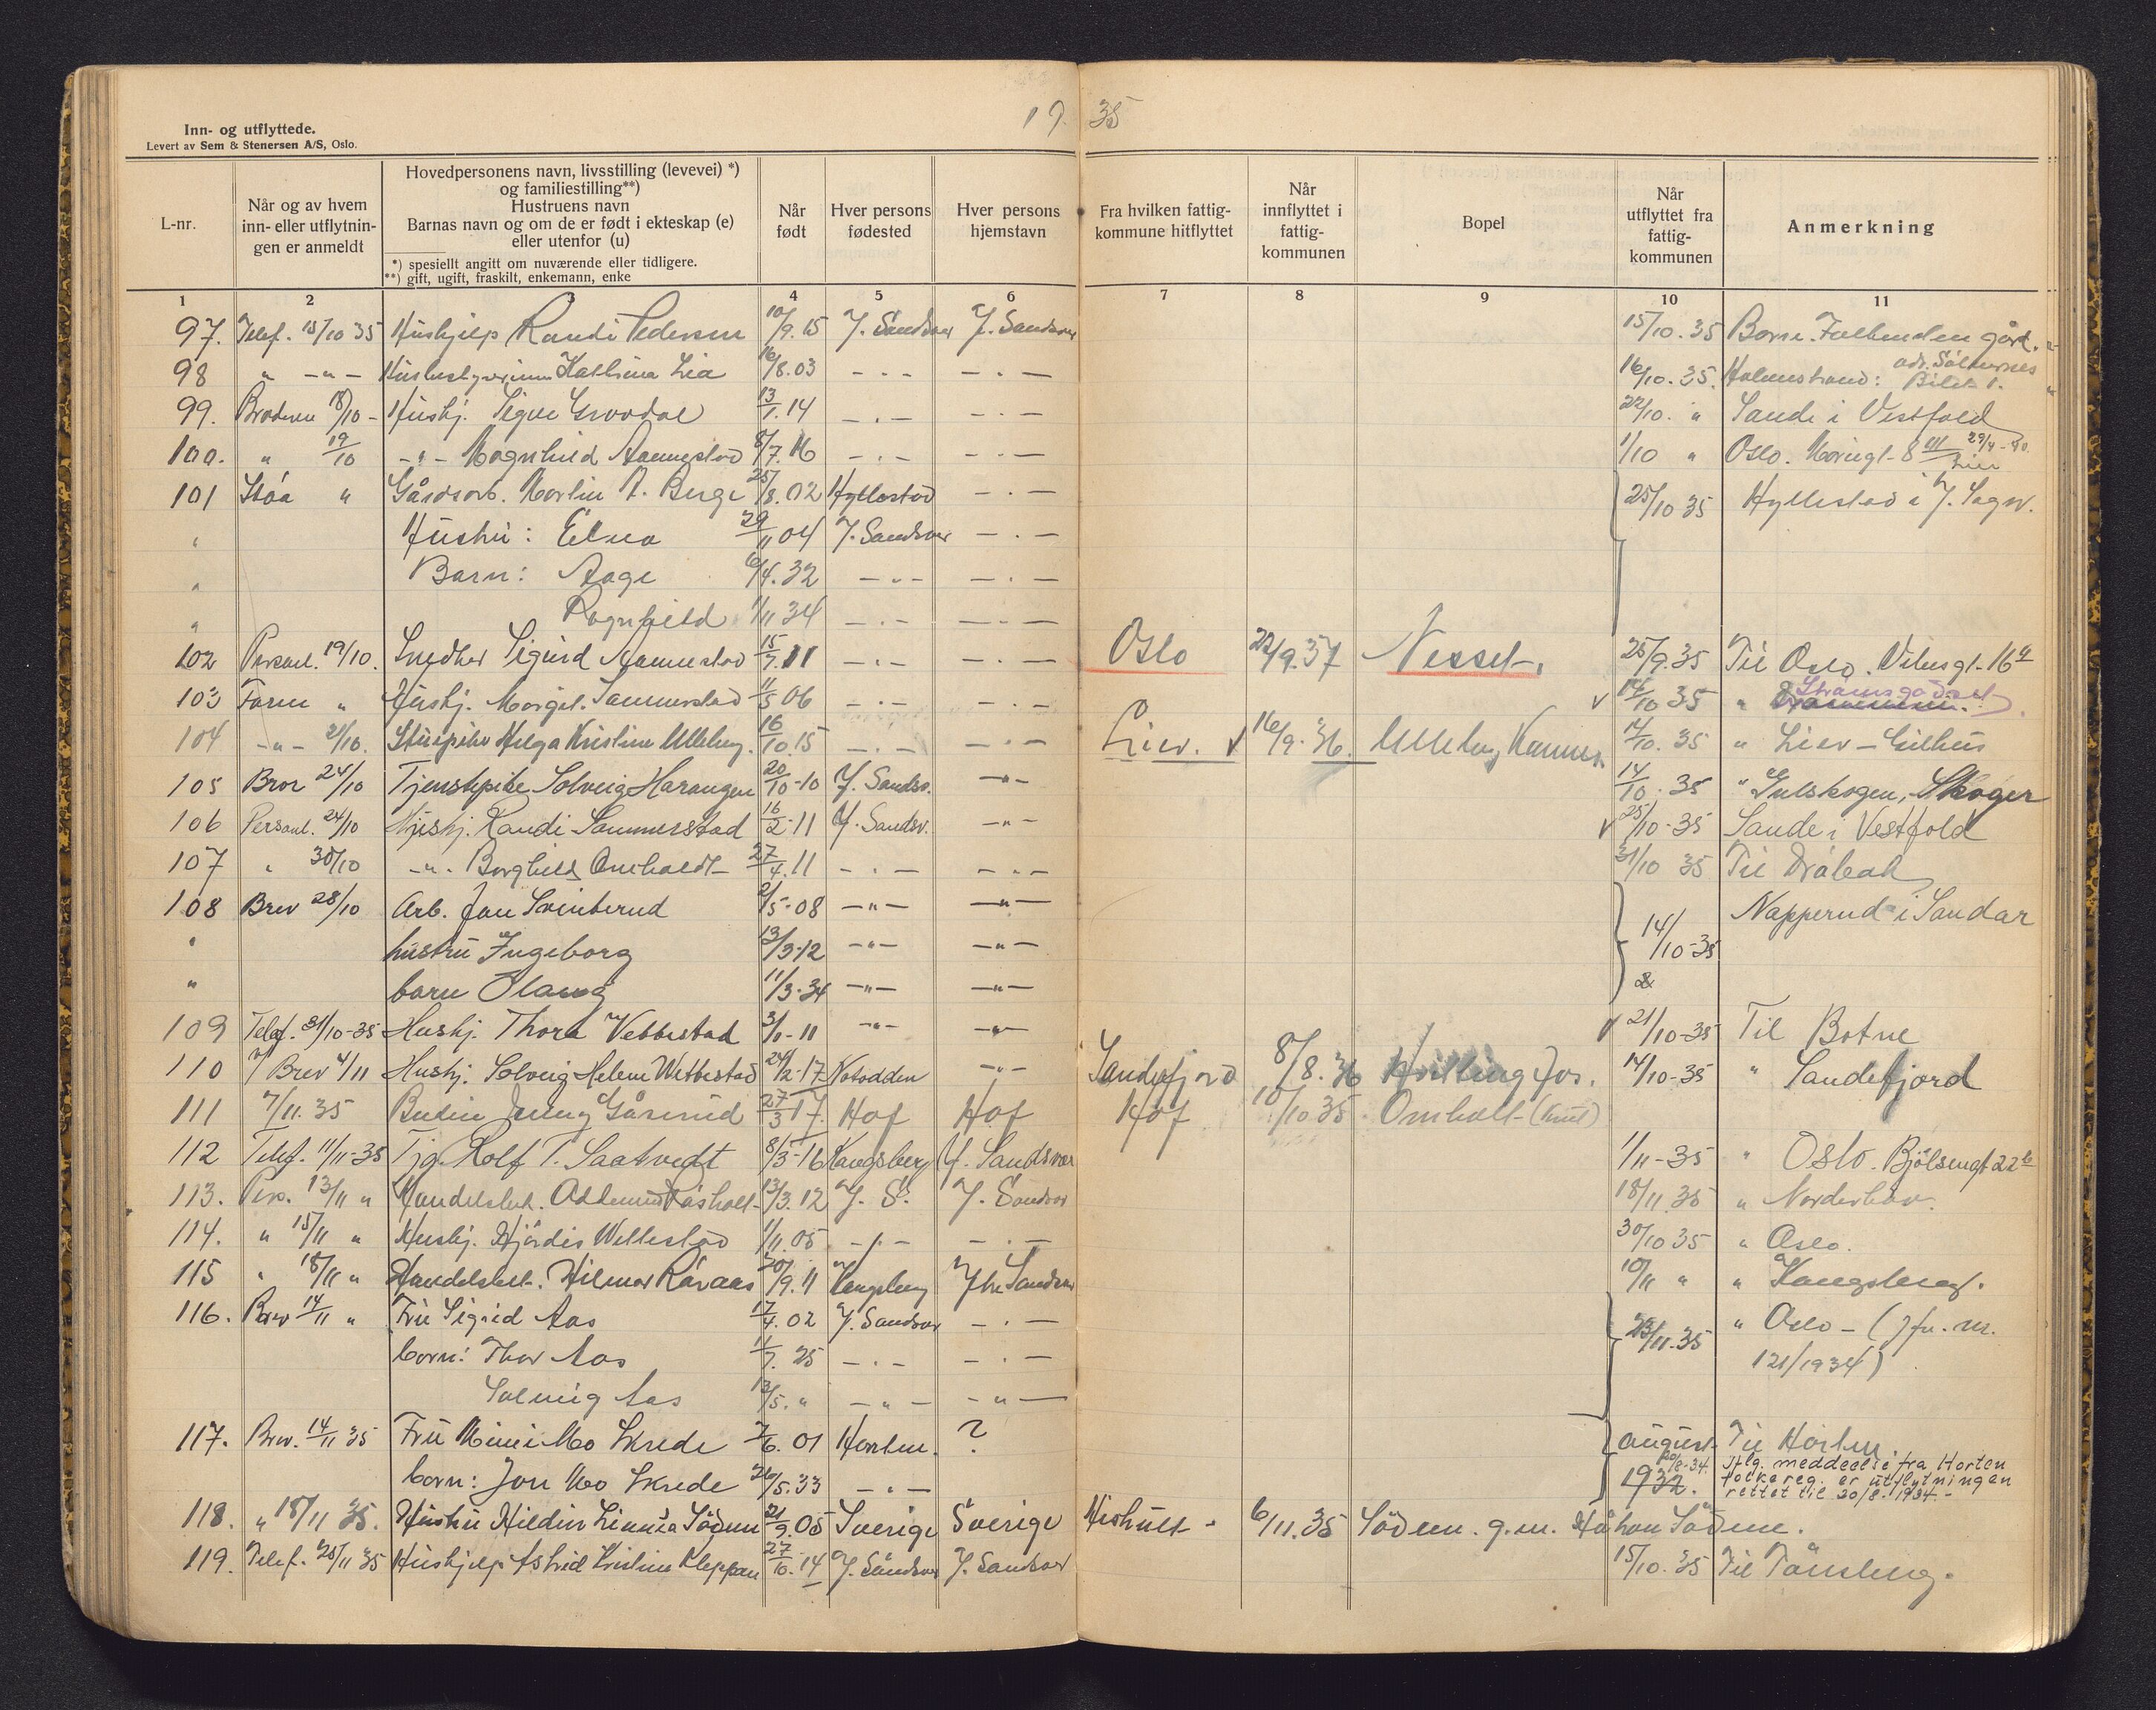 19 35
Inn- og utflyttede.
Levert av Sem & Stenersen A/S, Oslo.
L-nr.
Når og av hvem inn- eller utflytnin-gen er anmeldt
Hovedpersonens navn, livsstilling (levevei) *)
og familiestilling**)
Hustruens navn
Barnas navn og om de er født i ekteskap (e)
eller utenfor (u)
*) spesiellt angitt om nuværende eller tidligere.
**) gift, ugift, fraskilt, enkemann, enke
Når født
Hver persons fødested
Hver persons hjemstavn
Fra hvilken fattig-kommune hitflyttet
Når innflyttet i fattig-kommunen
Bopel
Når utflyttet fra fattig-kommunen
Anmerkning
1 2 4 5 6 7 8 9 10 11
97. Telef. 15/10 35 Hushjelp Randi Pedersen 10/9.15 Y. Sandsvær Y. Sandsvær 15/10.35 gård.
98 " -"- Kathrina Lia 16/8.03 - " - - " - 16/10.35. Holmestrand:
99. 18/10 - Hushj. Signe 13/1.14 - " - - " - 22/10. " Sande i Vestfold
100. " 19/10 -"- Magnhild 8/7.16 - " - - " - 1/10 " Oslo.
101 " Gårdsarb. 25/8.02 Hyllestad - " - 25/10 35 Hyllestad i Y. Sogn.
" Hustru: Elna 29/11 04 Y. Sandsvær - " -
" Barn: Aage 6/4.32 - " - - " -
" Ragnhild 1/11 34 - " - - " -
102 19/10. Snedker Sigurd 15/7.11 - " - - " - Oslo 22/9.37 Nesset 25/9.35 Til Oslo.
103 " Hushj. Margit 11/5 06 - " - - " - 14/10 35 " Strømsgodset
104 -"- 21/10. Helga Kristine Ulleberg. 16/10 15 - " - - " - Lier. 16/9.36. Ulleberg 14/10.35 " Lier
105 Brev 24/10 Tjenestepike Solveig 20/10-10 Y. Sandsv. -"- 14/10.35 " Gulskogen, Skoger
106 Personl. 24/10 Hushj. Randi Sammerstad 16/2-11 Y. Sandsv. -"- 25/10-35 Sande i Vestfold
107 " 30/10 -"- Borghild Omholdt 27/4.11 - " - - " - 31/10 35 Til Drøbak
108 Brev 28/10 Arb. Jan 2/5-08 -"- -"- 14/10-35 Napperud i Sandar
" hustru Ingeborg 13/3-12 -"- -"-
" barn Olaug 11/3-34 -"- -"-
109 Telef. 31/10-35 Hushj. Thora Vebbestad -"- -"- 21/10-35 Til Botne
110 Brev 4/11 Hushj. Solveig Helene Webbestad 24/2-17 Notodden -"- Sandefjord 8/8.36 14/10-35 " Sandefjord
111 7/11.35 Budeie Jenny 27/3 17. Hof Hof Hof 10/10.35 Omholt (Knut)
112 Telef. 11/11-35 Rolf T. Saatvedt 8/3-16 Kongsberg Y. Sandsvær 1/11-35 " Oslo. Bjølsengt 22 b
113. Pers. 13/11 " 13/3.12 Y. S. Y. Sandsvær 18/11.35 " Norderhov.
114. " 15/11 " Hushj. Hjördis Wellestad 1/11.05 - " - - " - 30/10 35 " Oslo.
115 " 18/11 " Handelsbet. Hilmar Råvaas 20/9.11 Kongsberg Ytre Sandsvær 10/11 " " Kongsberg.
116. Brev 14/11 " Fru Sigrid Aas 17/4.02 Y. Sandsvær - " - 23/11.35 " Oslo - (Jfr. nr.
barn: Thor Aas 11/7.25 - " - - " - 121/1934)
Solveig Aas 13/5. " - " - - " -
117. Brev. 14/11 35 Fru Mimi Mo Skrede 7/6.01 Horten. ? august 1932. Til Horten.
barn: Jon Mo Skrede 26/5.33 - " - 20/8-34. iflg. meddelelse fra Horten
folkereg. er utflytningen
rettet til 20/8-1934.-
118. " 18/11 35. Hustru Hildur Linnéa Södem 21/9.05 Sverige Sverige Hishult 6/11.35 Södem. g.m. Håkan Södem.
119. Telef. 25/11 35 Hushjelp Astrid Kristine Kleppan 27/10.14 Y. Sandsvær Y. Sandsvær 15/10.35 Til Tønsberg.